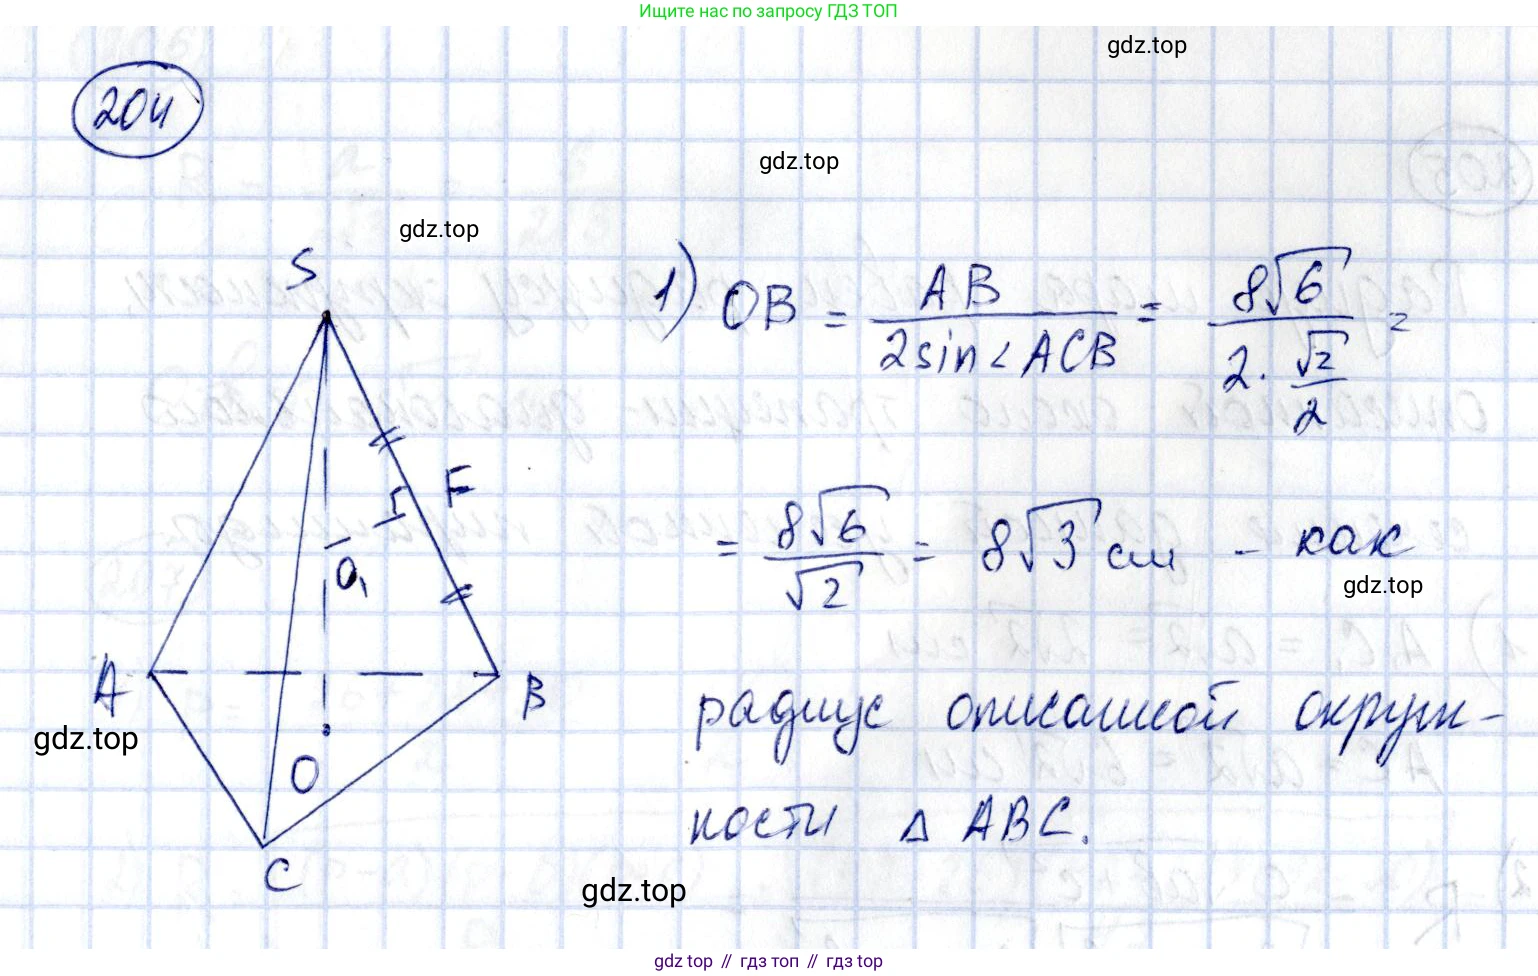 Ищите нас по запросу ГДЗ ТОП
gdz.top
204
gdz.top
gdz.top
S
1) OB = AB / 2sin∠ACB = 8√6 / 2·√2/2 =
F
O₁
= 8√6 / √2 = 8√3 см - как
gdz.top
A
B
радиус описанной окруж-
gdz.top
O
ности Δ ABC.
C
gdz.top
gdz top // гдз топ // гдз top